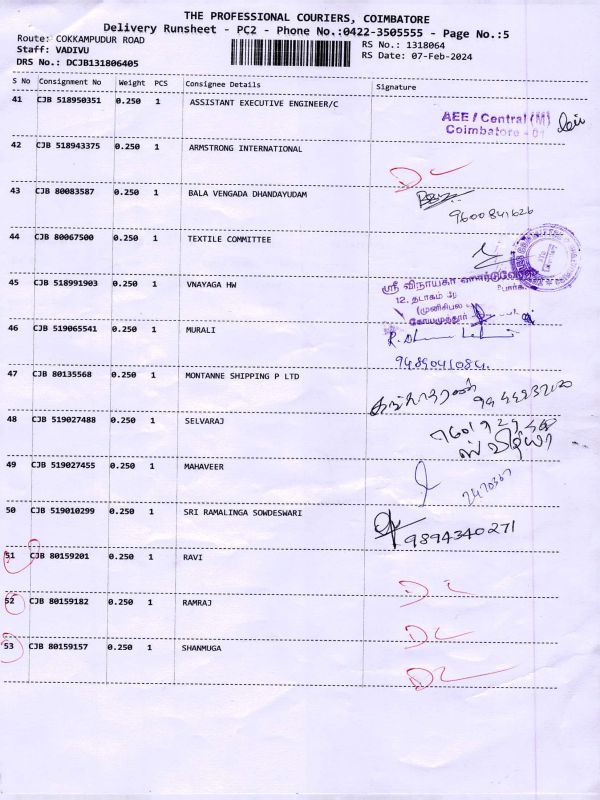 THE PROFESSIONAL COURIERS, COIMBATORE
Delivery Runsheet - PC2 - Phone No.:0422-3505555 - Page No.:5
Route: COKKAMPUDUR ROAD
Staff: VADIVU
DRS No.: DCJB131806405
RS No.: 1318064
RS Date: 07-Feb-2024
S No Consignment No Weight PCS Consignee Details Signature
41 CJB 518950351 0.250 1 ASSISTANT EXECUTIVE ENGINEER/C
AEE / Central (M)
Coimbatore - 01
42 CJB 518943375 0.250 1 ARMSTRONG INTERNATIONAL
DL
43 CJB 80083587 0.250 1 BALA VENGADA DHANDAYUDAM
9600841626
44 CJB 80067500 0.250 1 TEXTILE COMMITTEE
45 CJB 518991903 0.250 1 VNAYAGA HW
ஸ்ரீ விநாயகா
12, தடாகம்
(முனிசிபல்
கோயமுத்தூர்
46 CJB 519065541 0.250 1 MURALI
9489041084
47 CJB 80135568 0.250 1 MONTANNE SHIPPING P LTD
48 CJB 519027488 0.250 1 SELVARAJ
49 CJB 519027455 0.250 1 MAHAVEER
2470367
50 CJB 519010299 0.250 1 SRI RAMALINGA SOWDESWARI
9894340271
51 CJB 80159201 0.250 1 RAVI
DL
52 CJB 80159182 0.250 1 RAMRAJ
DL
53 CJB 80159157 0.250 1 SHANMUGA
DL